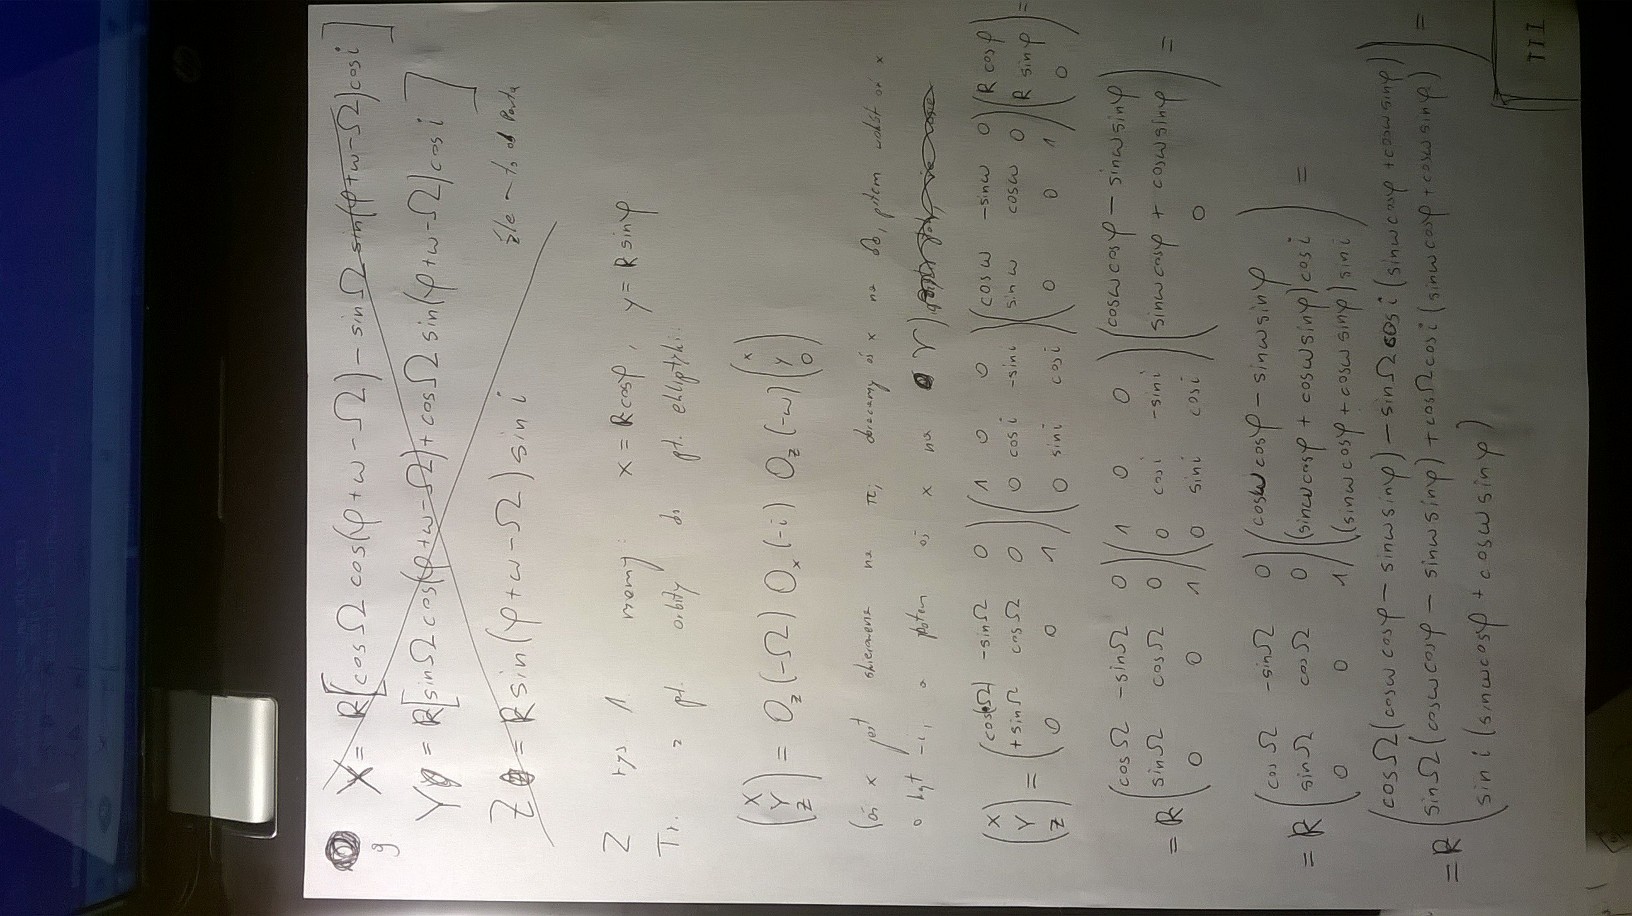 9
X = R[cosΩ cos(φ+ω−Ω) − sinΩ sin(φ+ω−Ω)cos i]
Y = R[sinΩ cos(φ+ω−Ω) + cosΩ sin(φ+ω−Ω)cos i]
Z = R sin(φ+ω−Ω) sin i
źle ~ to od
Z rys 1. mamy: x = R cosφ, y = R sinφ
Tr. z pł. orbity do pł. ekliptyki:
(X Y Z) = O_z(−Ω) O_x(−i) O_z(−ω) (x y 0)
(oś x jest skierowana na π, obracamy oś x na ☊, potem wokół osi x
o kąt −i, a potem oś x na ♈)
(X Y Z) = (cos(Ω) −sinΩ 0; +sinΩ cosΩ 0; 0 0 1) (1 0 0; 0 cos i −sin i; 0 sin i cos i) (cosω −sinω 0; sinω cosω 0; 0 0 1) (R cosφ; R sinφ; 0) =
= R (cosΩ −sinΩ 0; sinΩ cosΩ 0; 0 0 1) (1 0 0; 0 cos i −sin i; 0 sin i cos i) (cosω cosφ − sinω sinφ; sinω cosφ + cosω sinφ; 0) =
= R (cosΩ −sinΩ 0; sinΩ cosΩ 0; 0 0 1) (cosω cosφ − sinω sinφ; (sinω cosφ + cosω sinφ) cos i; (sinω cosφ + cosω sinφ) sin i) =
= R (cosΩ(cosω cosφ − sinω sinφ) − sinΩ cos i (sinω cosφ + cosω sinφ); sinΩ(cosω cosφ − sinω sinφ) + cosΩ cos i (sinω cosφ + cosω sinφ); sin i (sinω cosφ + cosω sinφ)) =
III